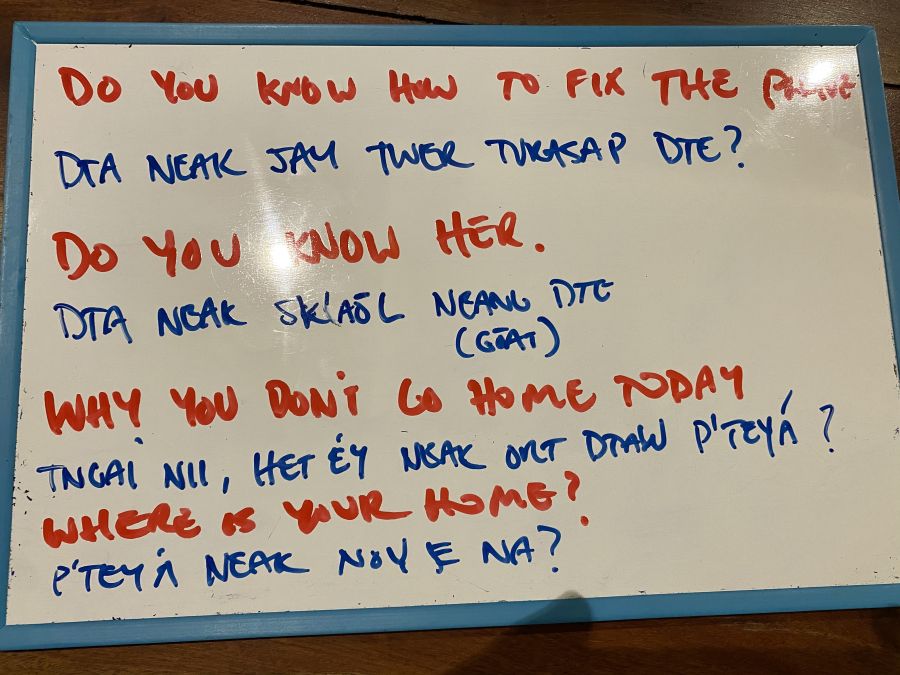 DO YOU KNOW HOW TO FIX THE PHONE
DTA NEAK JAY TWER TURASAP DTE?
DO YOU KNOW HER.
DTA NEAK SKIAÖL NEANG DTE
(GŌAT)
WHY YOU DON'T GO HOME TODAY
TNGAI NII, HET ÉY NEAK ORT DTAW P'TEYÁ?
WHERE IS YOUR HOME?
P'TEYÁ NEAK NÖY E NA?